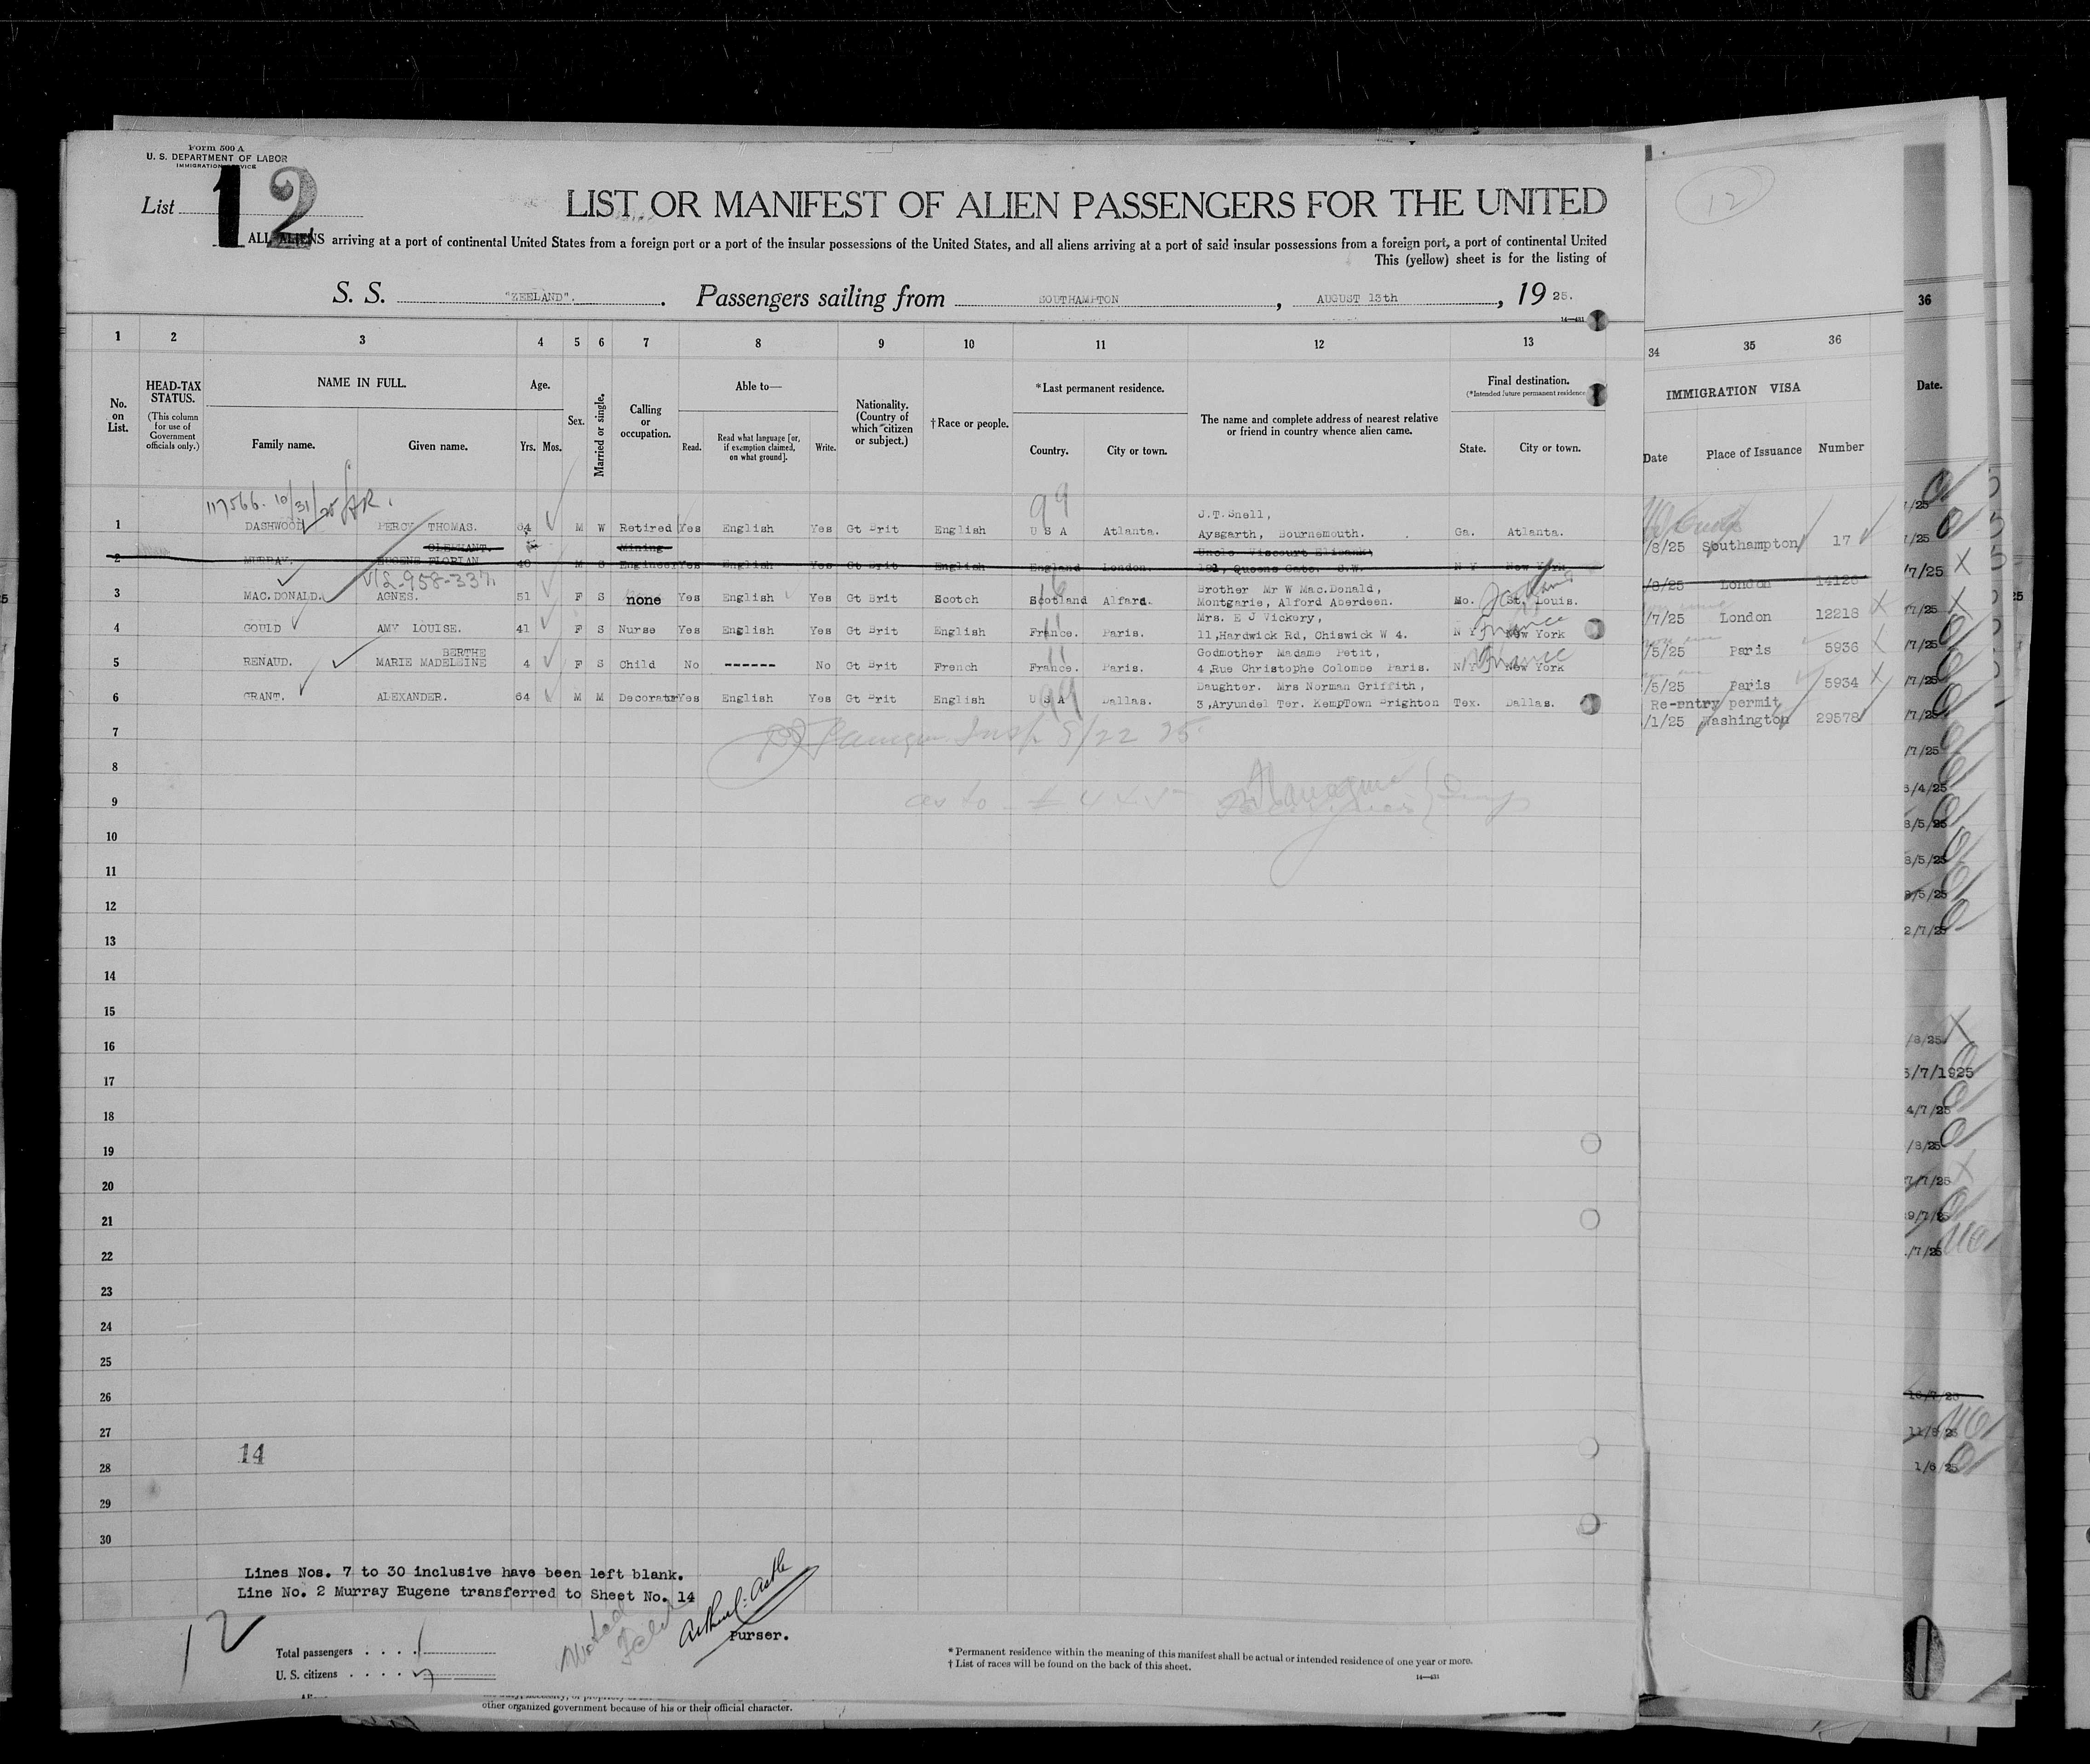 Form 500 A
U. S. DEPARTMENT OF LABOR
IMMIGRATION SERVICE
List 12
LIST OR MANIFEST OF ALIEN PASSENGERS FOR THE UNITED
ALL ALIENS arriving at a port of continental United States from a foreign port or a port of the insular possessions of the United States, and all aliens arriving at a port of said insular possessions from a foreign port, a port of continental United
This (yellow) sheet is for the listing of
S. S. "ZEELAND". Passengers sailing from SOUTHAMPTON, AUGUST 13th, 1925.
14—431
1 2 3 4 5 6 7 8 9 10 11 12 13
No. on List.
HEAD-TAX STATUS. (This column for use of Government officials only.)
NAME IN FULL.
Family name. Given name.
Age.
Yrs. Mos.
Sex.
Married or single.
Calling or occupation.
Able to—
Read. Read what language [or, if exemption claimed, on what ground]. Write.
Nationality. (Country of which citizen or subject.)
†Race or people.
*Last permanent residence.
Country. City or town.
The name and complete address of nearest relative or friend in country whence alien came.
Final destination.
(*Intended future permanent residence
State. City or town.
34 35 36
IMMIGRATION VISA
Date Place of Issuance Number
36
Date.
12
117566. 10/31/25
99
J.T.Snell,
1 DASHWOOD PERCY THOMAS. 64 M W Retired Yes English Yes Gt Brit English U S A Atlanta. Aysgarth, Bournemouth. Ga. Atlanta. /8/25 Southampton 17
OLIPHANT. Mining Uncle Viscount Elibank
2 MURRAY. EUGENE FLORIAN 40 M S Engineer Yes English Yes Gt Brit English England London. 181, Queens Gate. S.W. N Y New York /8/25 London 14126
V/L-958-337
Brother Mr W Mac.Donald,
3 MAC.DONALD. AGNES. 51 F S none Yes English Yes Gt Brit Scotch Scotland Alfard. Montgarie, Alford Aberdeen. Mo. St. Louis. /7/25 London 12218
Scotland
Mrs. E J Vickery,
4 GOULD AMY LOUISE. 41 F S Nurse Yes English Yes Gt Brit English France. Paris. 11,Hardwick Rd, Chiswick W 4. N Y New York /5/25 Paris 5936
France
BERTHE Godmother Madame Petit,
5 RENAUD. MARIE MADELEINE 4 F S Child No ------ No Gt Brit French France. Paris. 4,Rue Christophe Colombe Paris. N Y New York /5/25 Paris 5934
France
Daughter. Mrs Norman Griffith, Re-entry permit
6 GRANT. ALEXANDER. 64 M M Decorator Yes English Yes Gt Brit English U S A Dallas. 3,Aryundel Ter. KempTown Brighton Tex. Dallas. /1/25 Washington 29578
99
7
8
9
10
11
12
13
14
15
16
17
18
19
20
21
22
23
24
25
26
27
28
29
30
14
Lines Nos. 7 to 30 inclusive have been left blank.
Line No. 2 Murray Eugene transferred to Sheet No. 14
Purser.
12
Total passengers . . . .
U. S. citizens . . . .
*Permanent residence within the meaning of this manifest shall be actual or intended residence of one year or more.
†List of races will be found on the back of this sheet.
14—431
other organized government because of his or their official character.